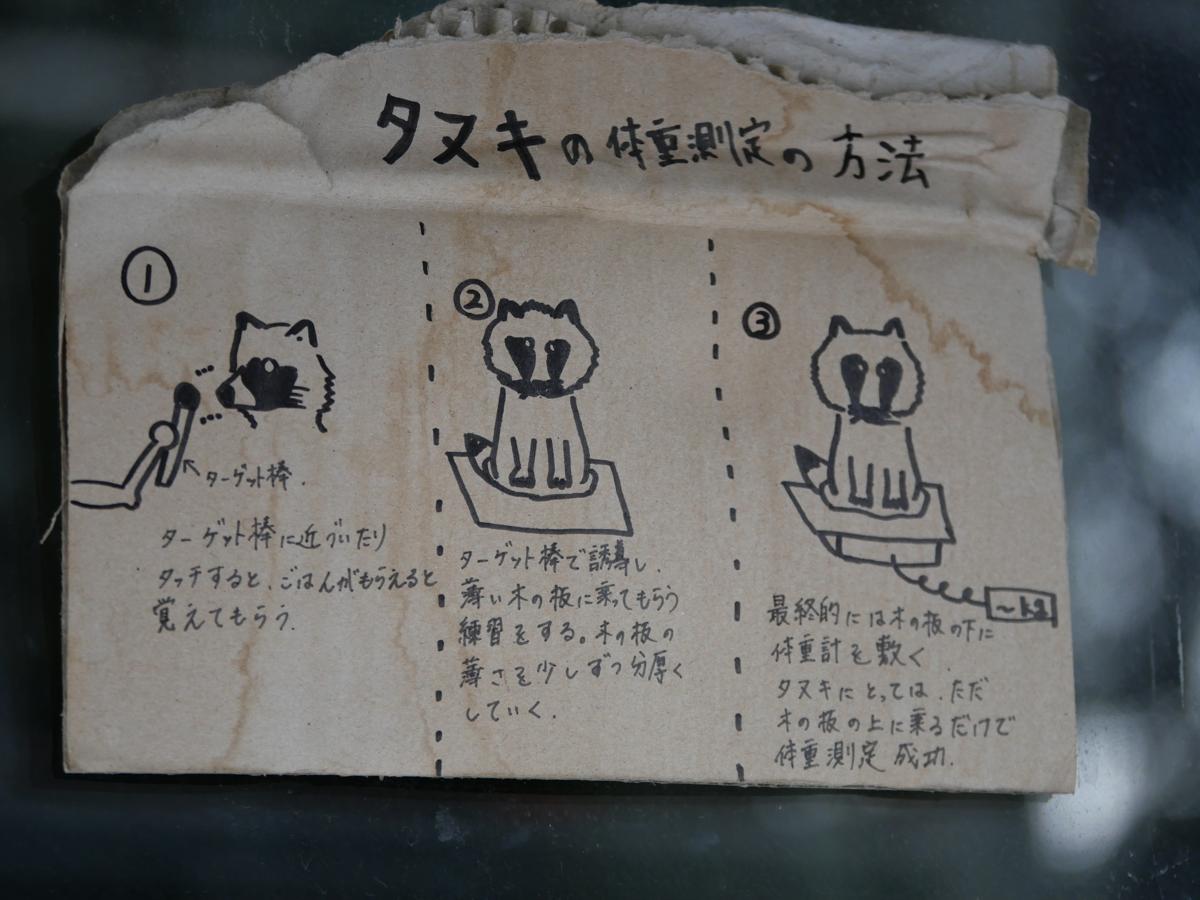 タヌキの体重測定の方法
①
ターゲット棒.
ターゲット棒に近づいたり
タッチすると、ごはんがもらえると
覚えてもらう.
②
ターゲット棒で誘導し.
薄い木の板に乗ってもらう
練習をする。木の板の
薄さを少しずつ分厚く
していく.
③
〜kg
最終的には木の板の下に
体重計を敷く.
タヌキにとっては、ただ
木の板の上に乗るだけで
体重測定成功.